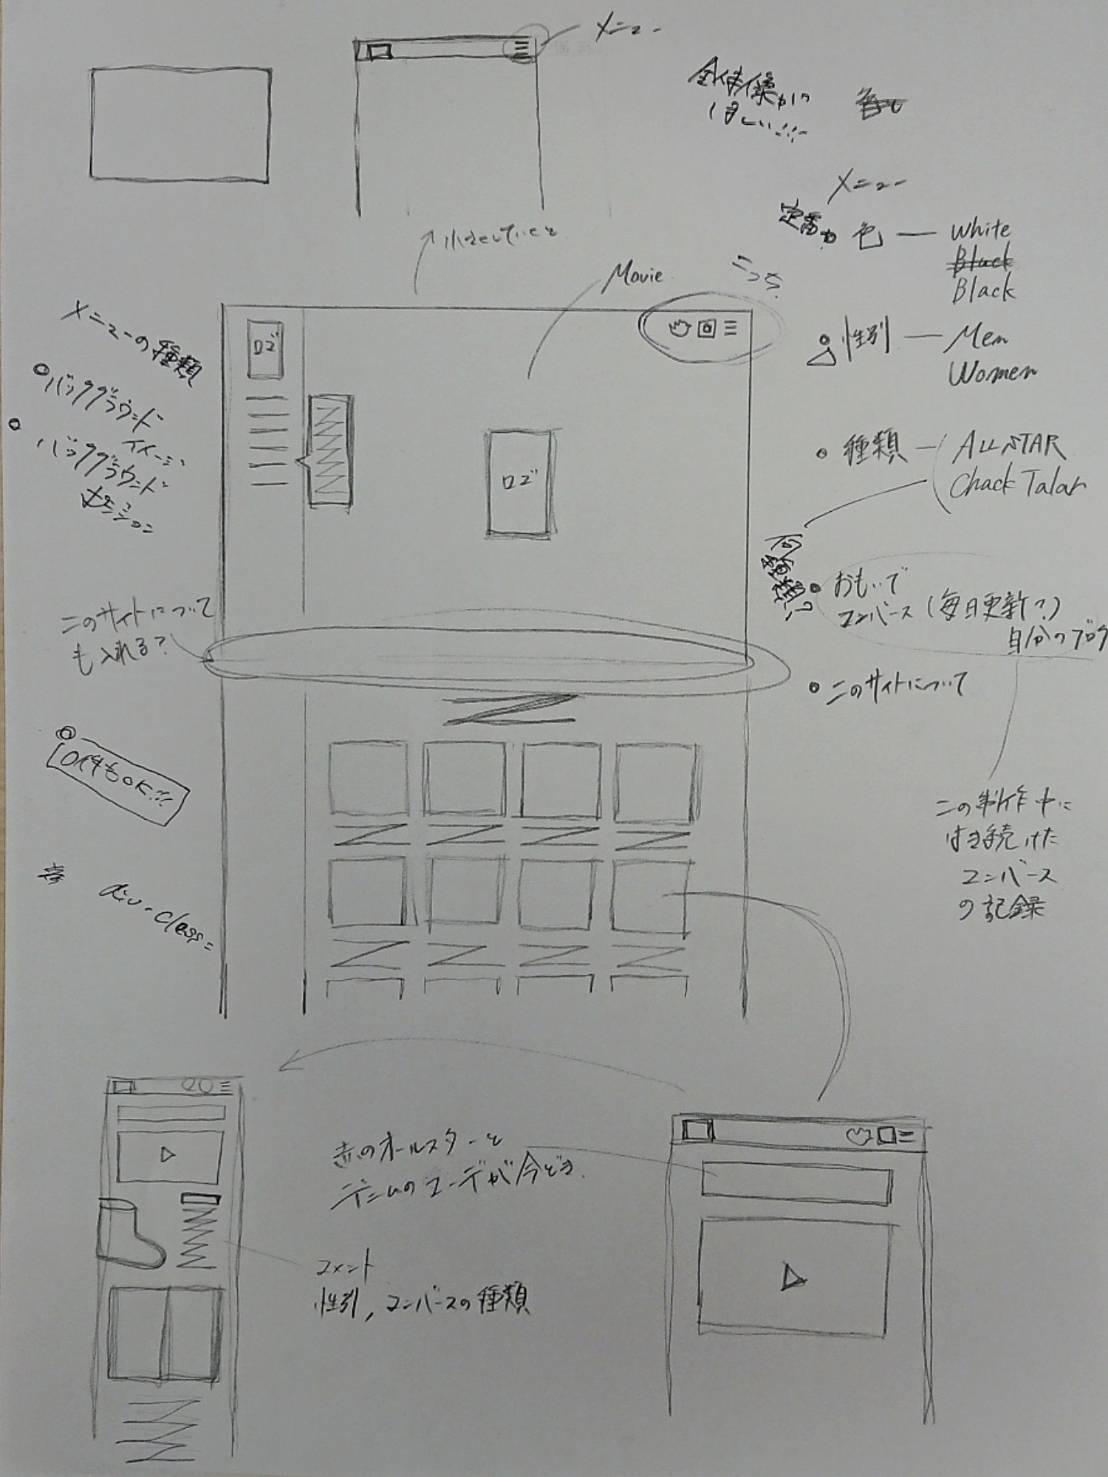 メニュー
全体像が
ほしい!!!
メニュー
定番の 色 — White
Black
Black
こっち
Movie
小さくしていくと
性別 — Men
Women
メニューの種類
バックグラウンド
イメージ
バックグラウンド
ポジション
ロゴ
ロゴ
種類 — ALL STAR
Chack Talar
何種類?
おもいで
コンバース(毎日更新?)
自分のブログ
このサイトについて
も入れる?
このサイトについて
div-class=
この制作中に
はき続けた
コンバース
の記録
赤のオールスターと
デニムのコーデが今どき.
コメント
性別, コンバースの種類